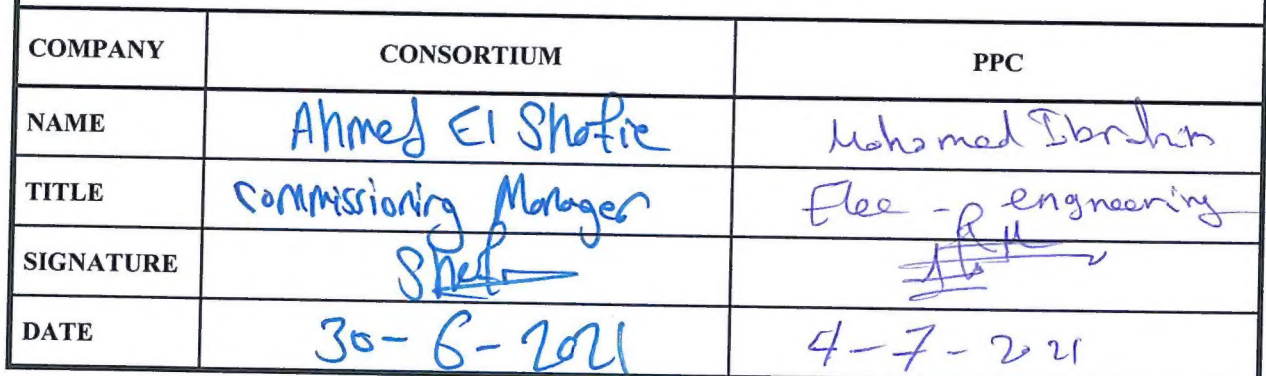 COMPANY CONSORTIUM PPC
NAME Ahmed El Shafie Mohamed Ibrahim
TITLE Commissioning Manager Elec - engneering
SIGNATURE Shef
DATE 30-6-2021 4-7-2021